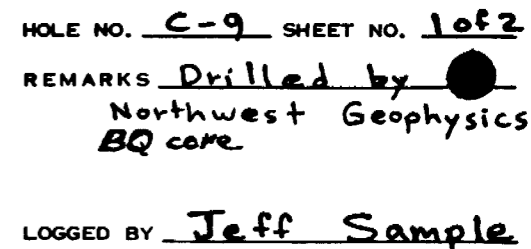 HOLE NO. C-9 SHEET NO. 1 of 2
REMARKS Drilled by
Northwest Geophysics
BQ core
LOGGED BY Jeff Sample